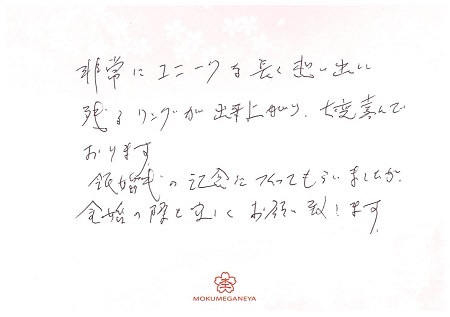 非常にユニークな長く想い出に
残るリングが出来上がり、大変喜んで
おります
銀婚式の記念につくってもらいましたが、
金婚の際も宜しくお願い致します
MOKUMEGANEYA